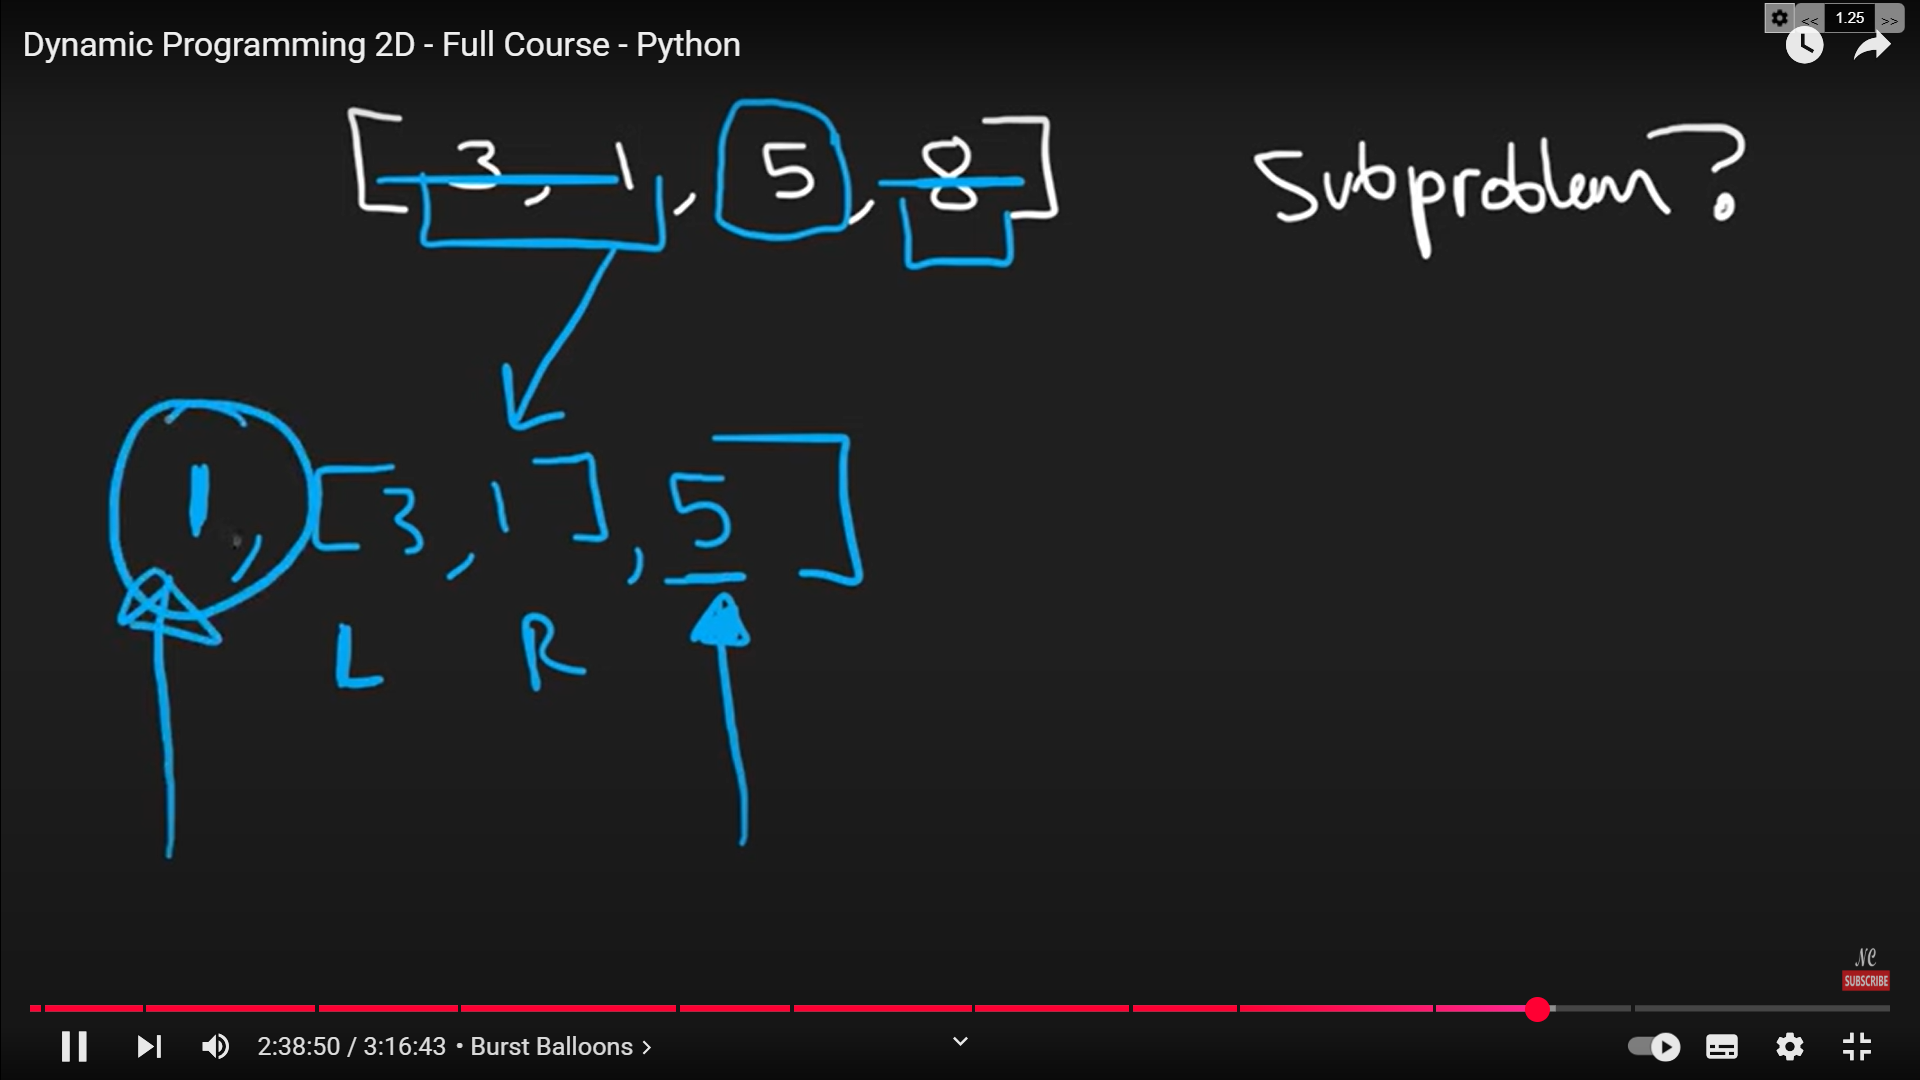 << 1.25 >>
Dynamic Programming 2D - Full Course - Python
[3, 1, 5, 8] Subproblem?
1, [3, 1], 5]
L R
NC
SUBSCRIBE
2:38:50 / 3:16:43 • Burst Balloons >